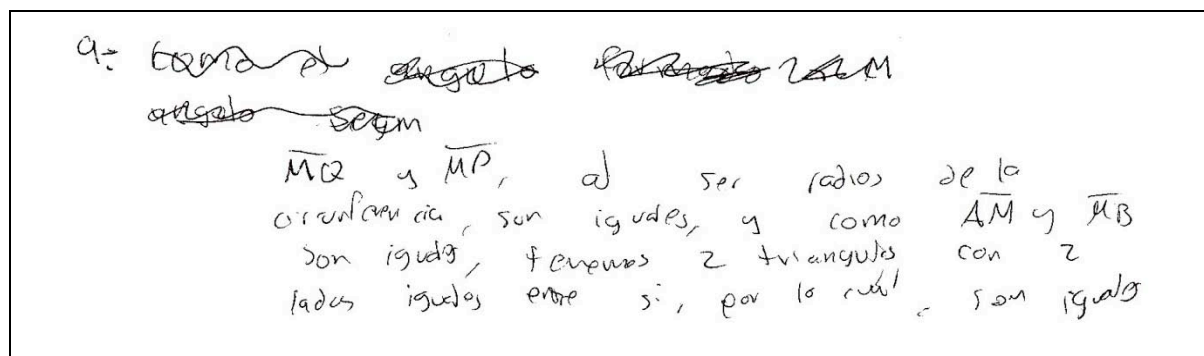 a: toma el angulo formado ∠AM
angulo segm
MQ y MP, al ser radios de la
circunferencia, son iguales, y como AM y MB
son iguales, tenemos 2 triangulos con 2
lados iguales entre si, por lo cuál, son iguales